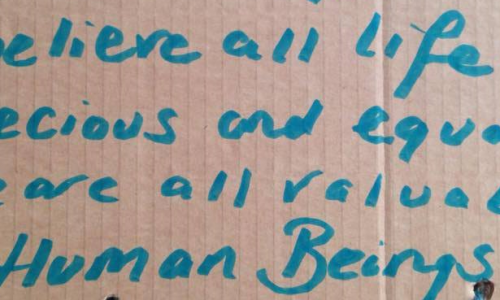 believe all life
ecious and equa
e are all valua
Human Beings